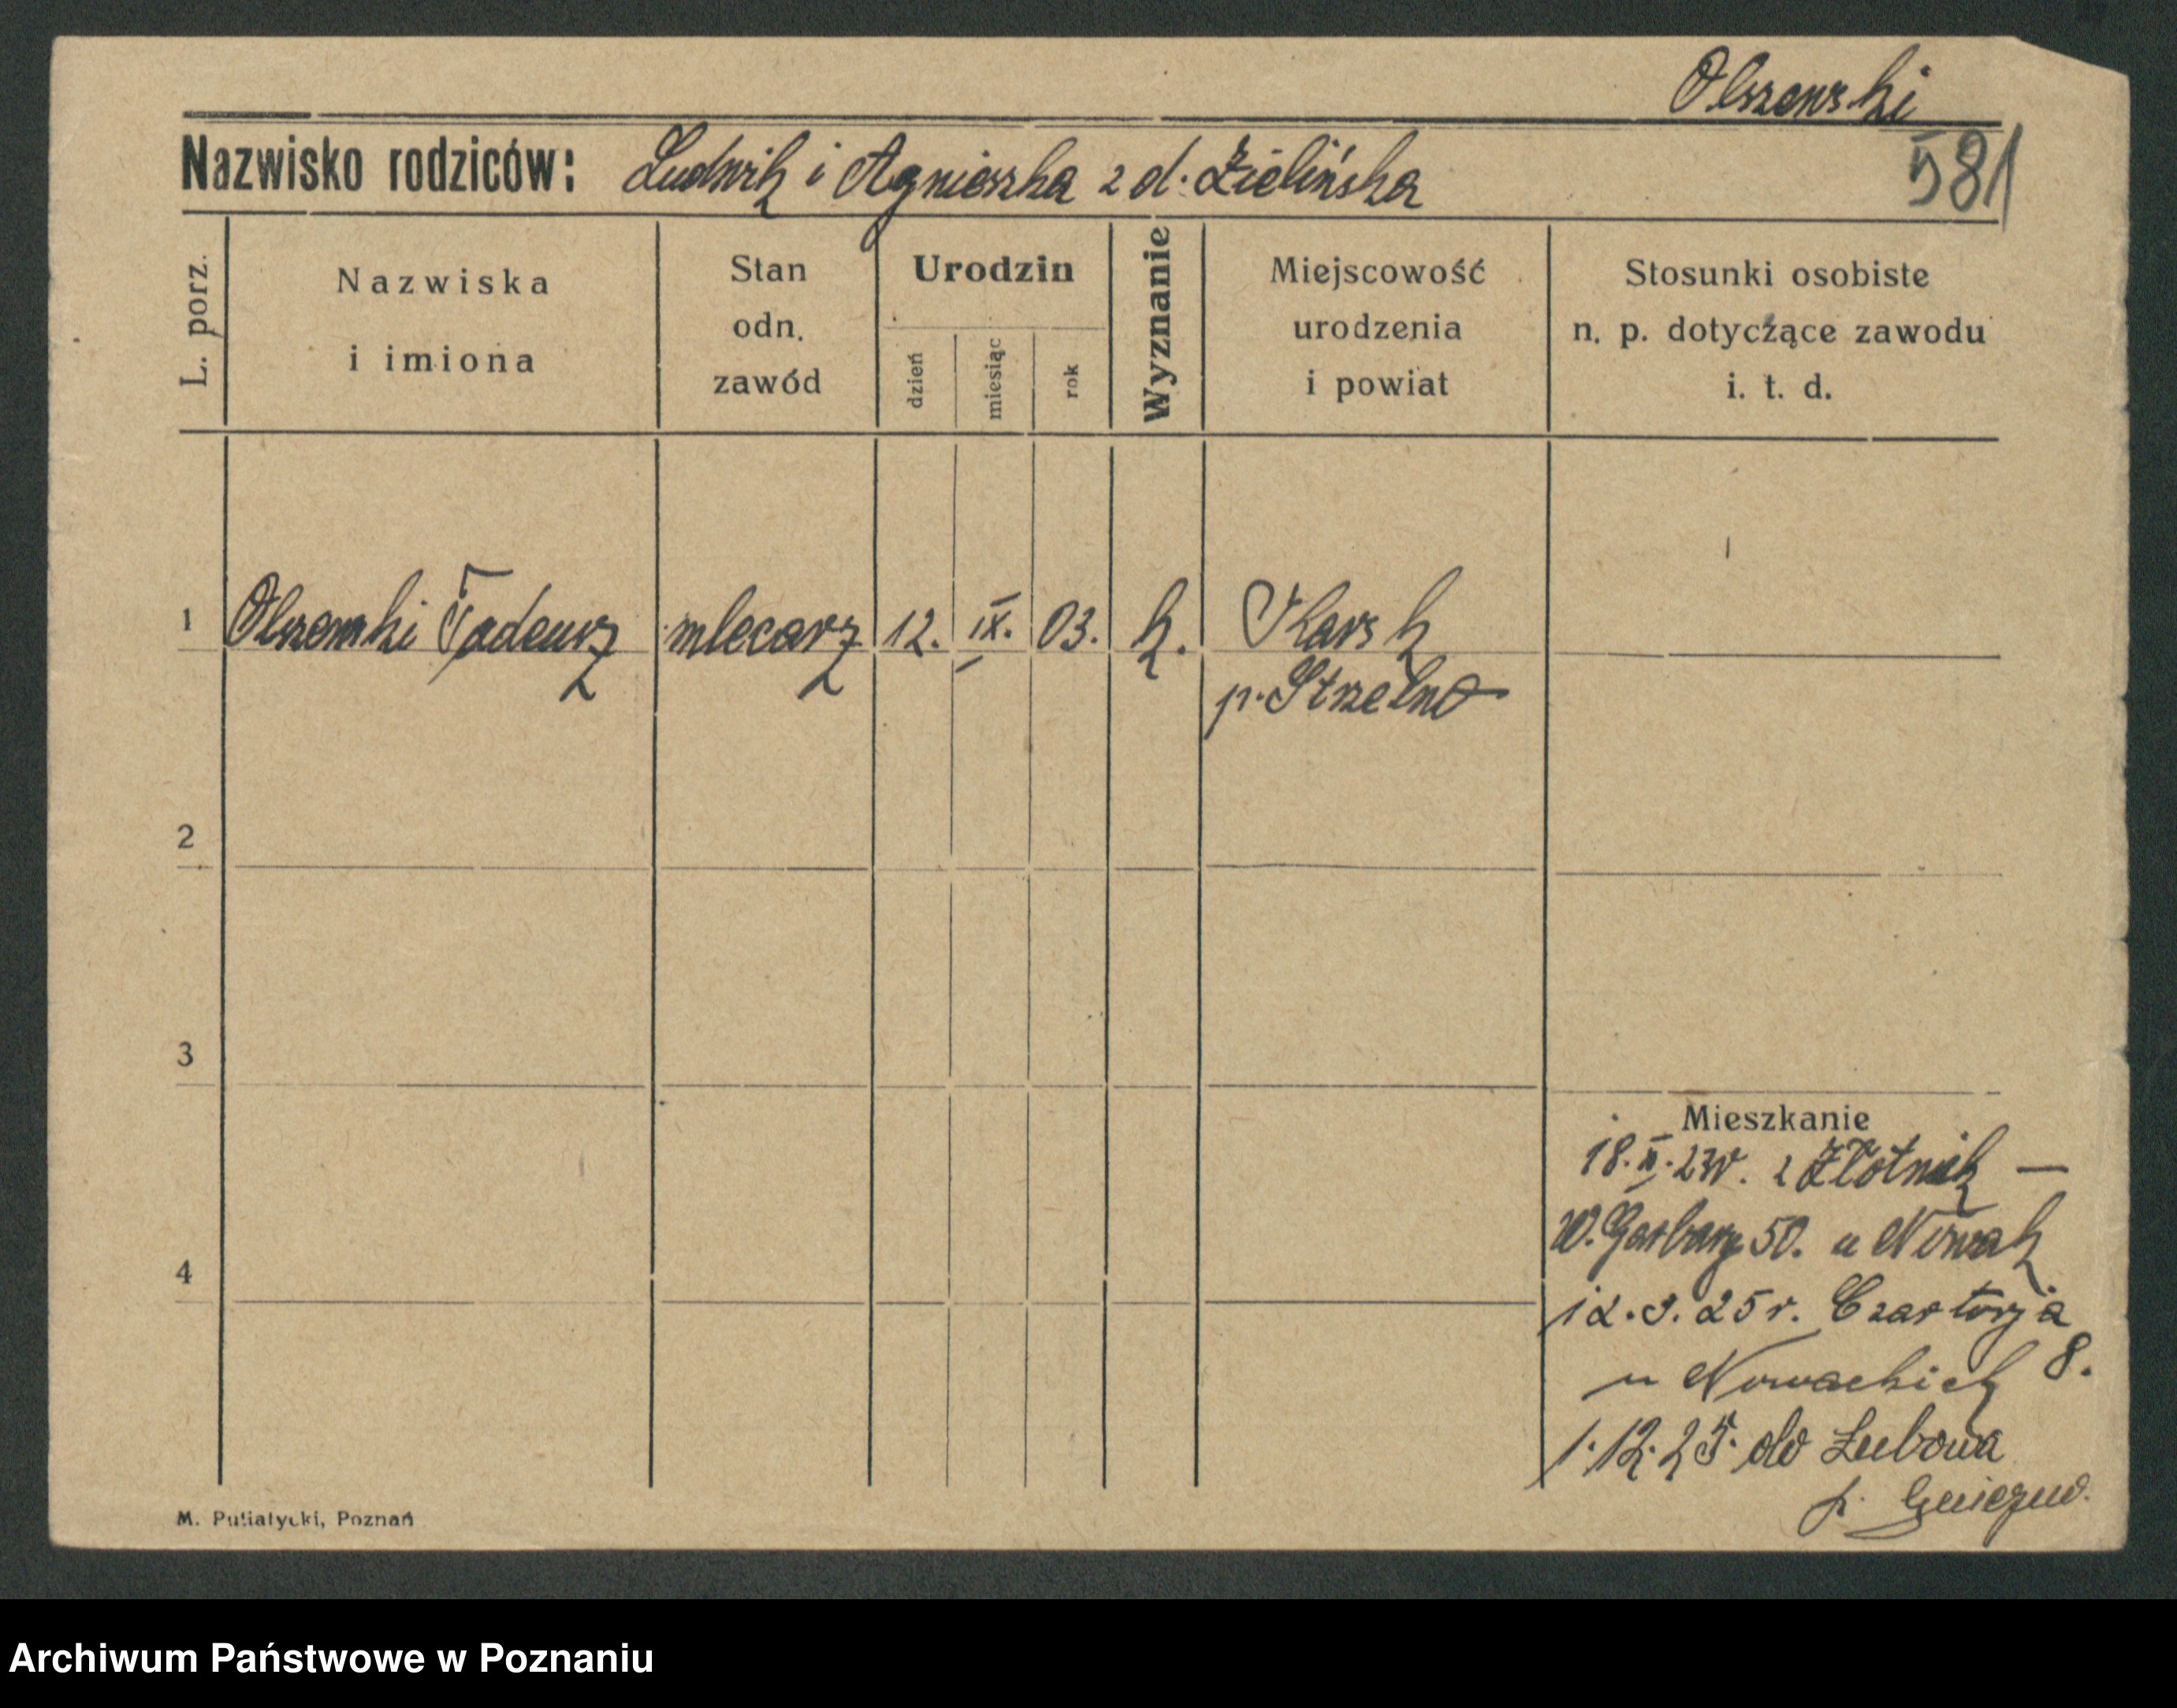 Olszewski
Nazwisko rodziców: Ludwik i Agnieszka z d. Zielińska
581
L. porz.
Nazwiska i imiona
Stan odn. zawód
Urodzin
dzień
miesiąc
rok
Wyznanie
Miejscowość urodzenia i powiat
Stosunki osobiste n. p. dotyczące zawodu i. t. d.
1 Olszewski Tadeusz mlecarz 12. IX. 03. k. Karsk
p. Strzelno
2
3
Mieszkanie
18. 23r. z Złotnik —
W. Garbary 50. u Nowak
4
12.3.25 r. Czartorja
8.
u Nowackich
1.12.25. do Łubowa
p. Gniezno.
M. Putiatycki, Poznań
Archiwum Państwowe w Poznaniu